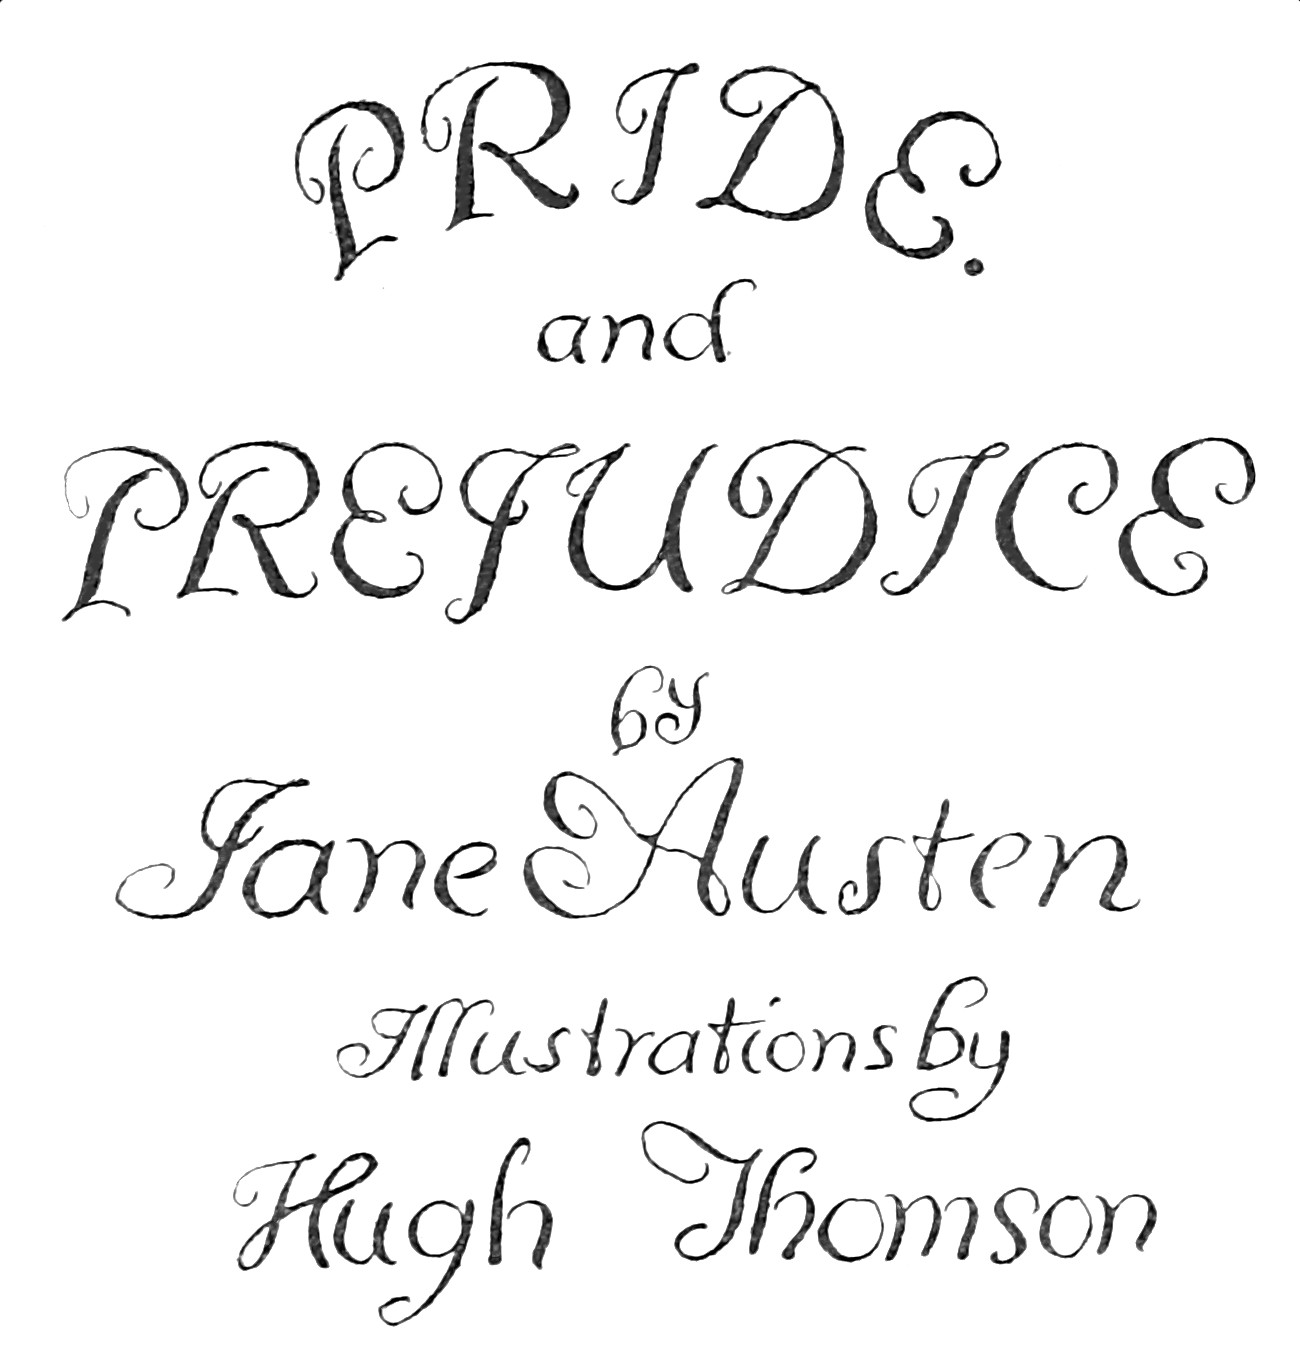 PRIDE.
and
PREJUDICE
by
Jane Austen
Illustrations by
Hugh Thomson